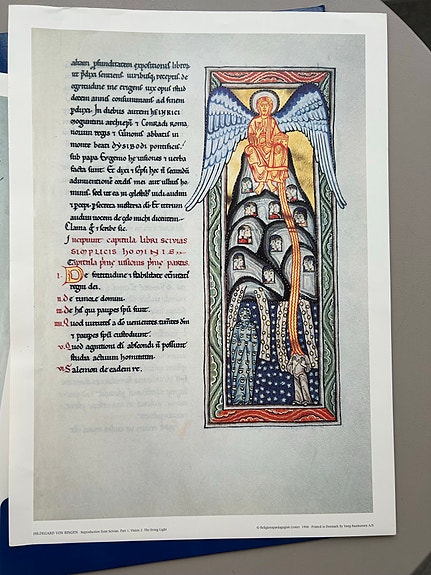 aliam profunditatem expositionis librorum
ut pdixi sentiens uiribusq; receptis de
egritudine me erigens uix opus istud
decem annis consummans ad finem
pduxi. In diebus autem HEINRICI
moguntini archiepi & Conradi roma
norum regis & Cunonis abbatis in
monte beati DYSIBODI pontificis
sub papa Eugenio he uisiones & uerba
facta sunt. Et dixi & scripsi hec ñ secundū
adinuentionē cordis mei aut ullius ho
minis. sed ut ea in celestib; uidi audiui
& pcepi p secreta misteria di. Et iterum
audiui uocem de celo michi dicentem.
Clama g & scribe sic.
Incipiunt capitula libri scivias
SIMPLICIS HOMINIS.
Capitula prime uisionis prime partis.
i. De fortitudine & stabilitate
regni dei.
ii. De timore domini.
iii. De his qui paupes spū sunt.
iiii. Quod uirtutes a do uenientes timētes dm
& paupes spū custodiunt.
v. Quod agnitioni di abscondi ñ possunt
studia actuum hominum.
vi. Salemon de eadem re.
HILDEGARD VON BINGEN - Reproduction from Scivias, Part 1, Vision 2: The living Light
© Religionspædagogisk Center 1998 Printed in Denmark by